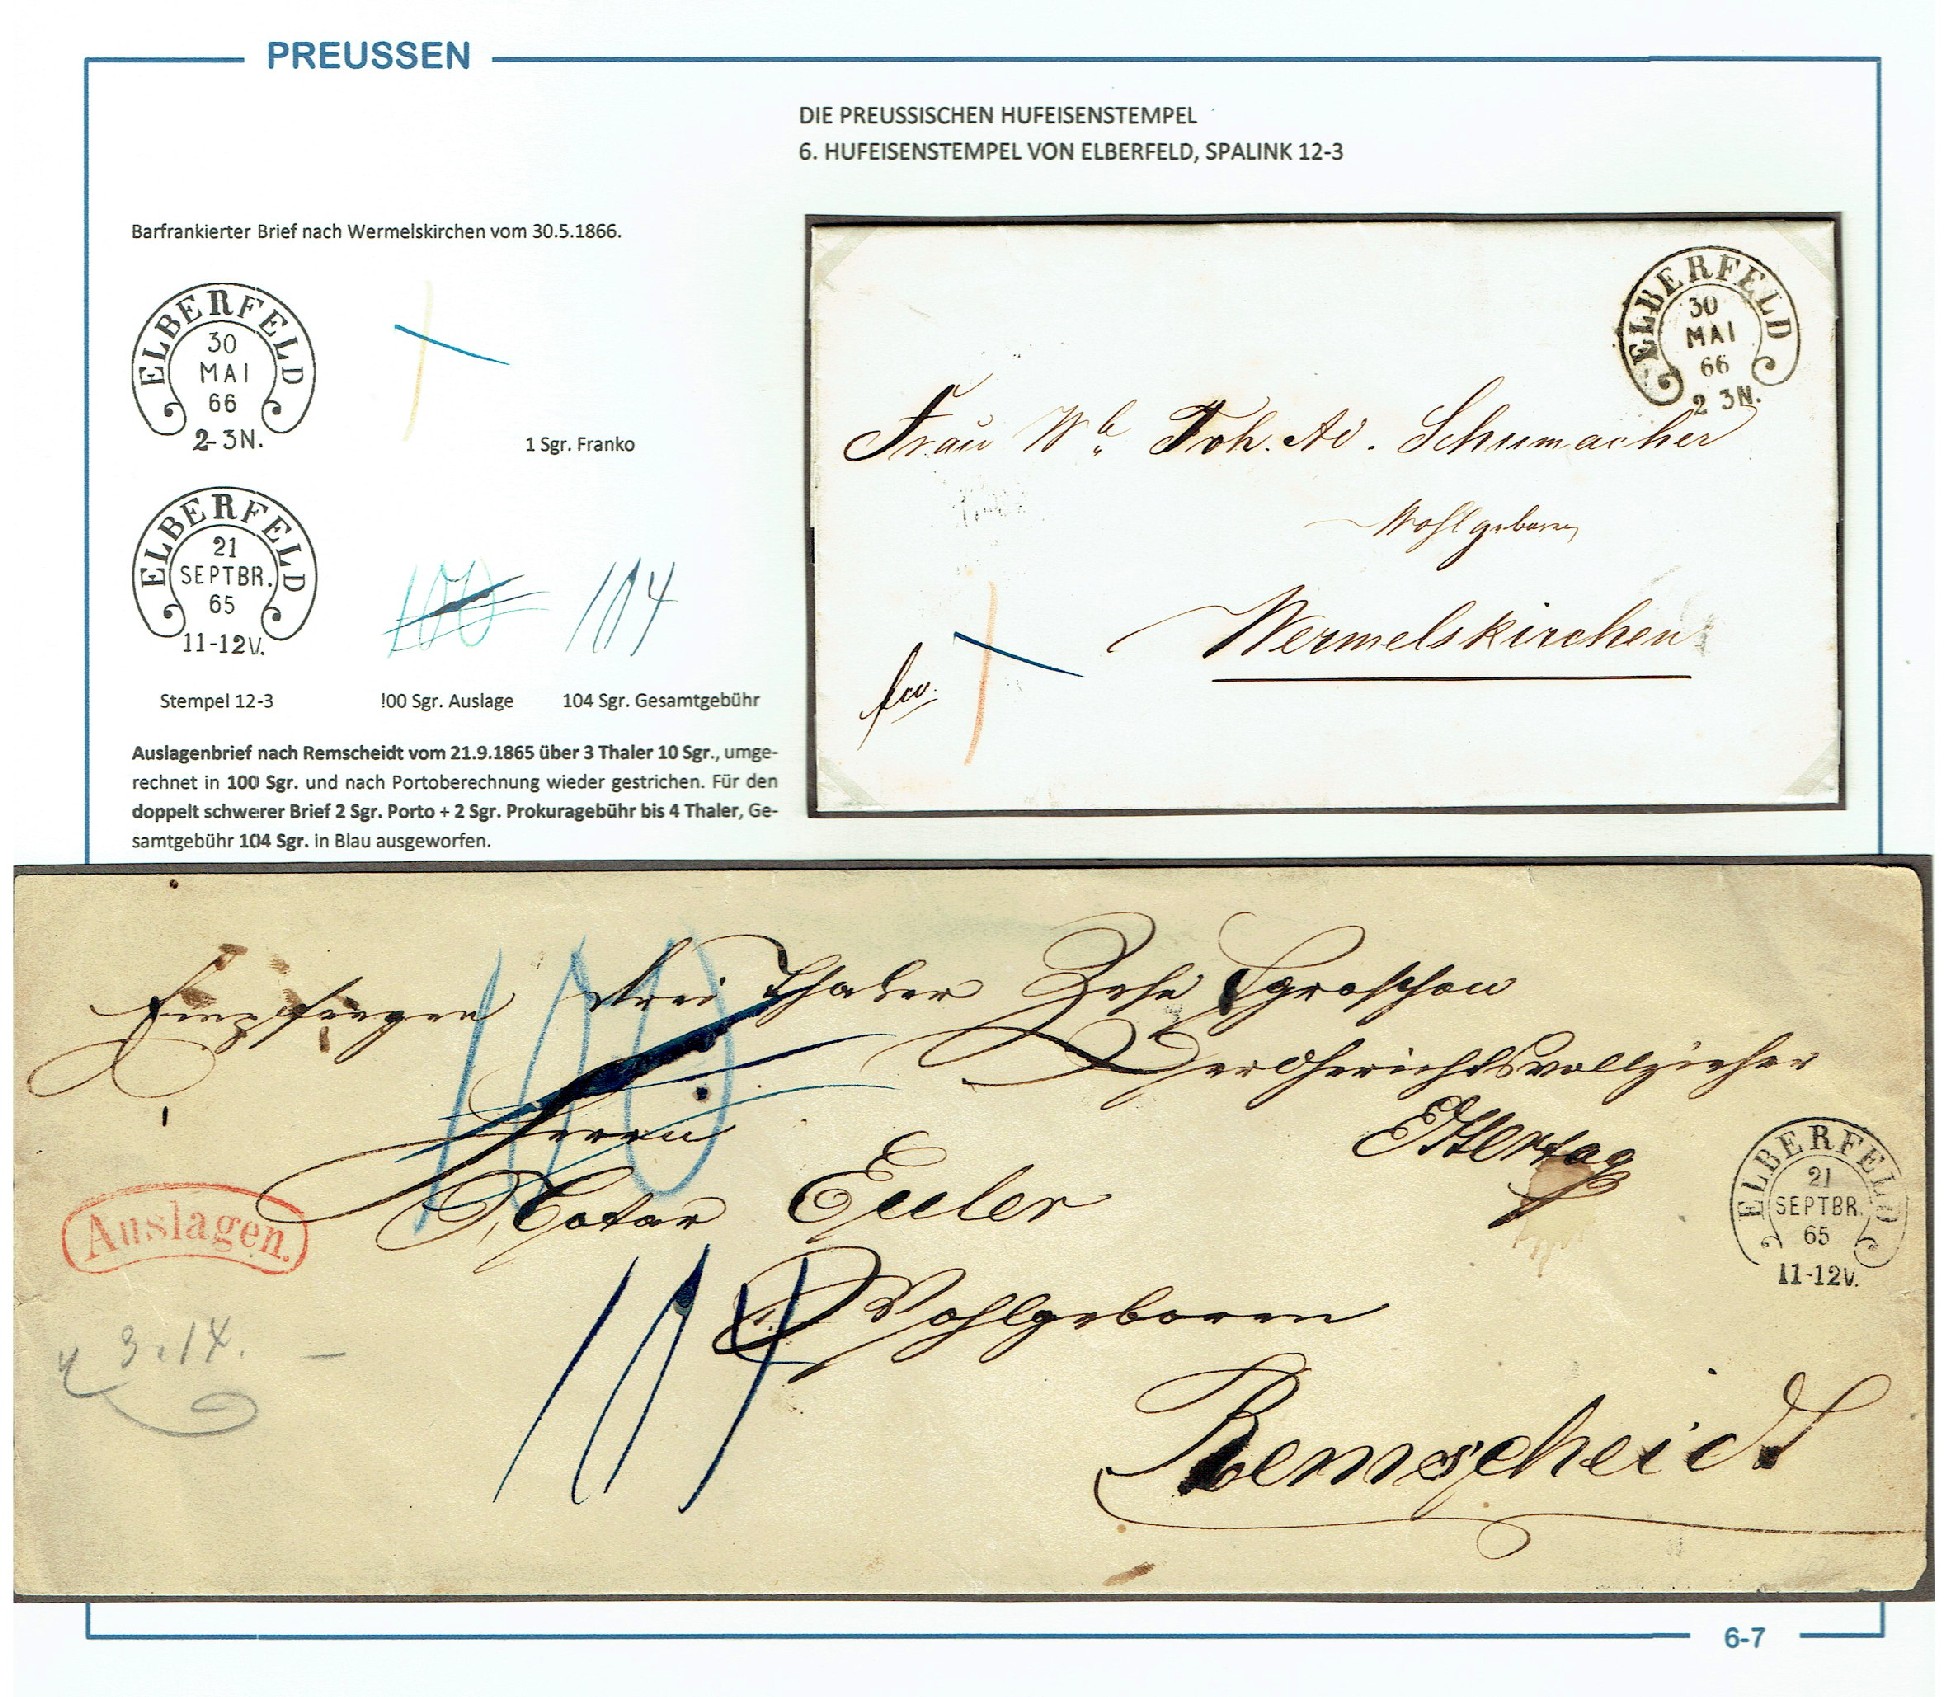 PREUSSEN
DIE PREUSSISCHEN HUFEISENSTEMPEL
6. HUFEISENSTEMPEL VON ELBERFELD, SPALINK 12-3
Barfrankierter Brief nach Wermelskirchen vom 30.5.1866.
ELBERFELD
30
MAI
66
2-3N.
1 Sgr. Franko
ELBERFELD
21
SEPTBR.
65
11-12V.
100
104
Stempel 12-3
!00 Sgr. Auslage
104 Sgr. Gesamtgebühr
Auslagenbrief nach Remscheidt vom 21.9.1865 über 3 Thaler 10 Sgr., umge-
rechnet in 100 Sgr. und nach Portoberechnung wieder gestrichen. Für den
doppelt schwerer Brief 2 Sgr. Porto + 2 Sgr. Prokuragebühr bis 4 Thaler, Ge-
samtgebühr 104 Sgr. in Blau ausgeworfen.
ELBERFELD
30
MAI
66
2 3N.
Frau Wb Joh. Ad. Schumacher
Wohlgeboren
Wermelskirchen
frco.
100
Empfangen drei Thaler Zehn Sgroschen
Gerichtsvollzieher
Herrn
Ettertag
Notar Euler
ELBERFELD
21
SEPTBR.
65
11-12V.
Auslagen.
104
Wohlgeboren
3.14.
Remscheid
6-7